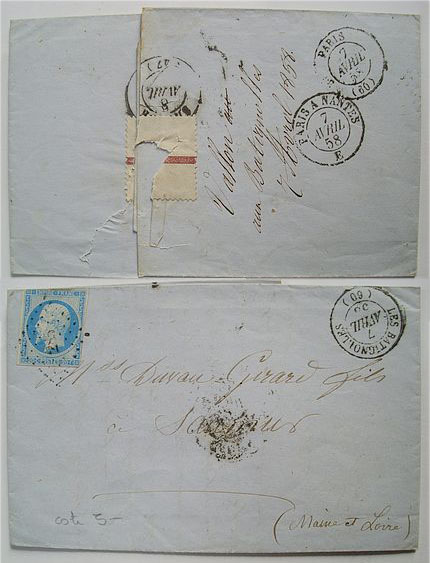 PARIS
7
AVRIL
58
(60)
PARIS A NANTES
7
AVRIL
58
E
(47)
8
AVRIL
aux Batignolles
7 Avril 1858
LES BATIGNOLLES
7
AVRIL
58
(60)
Duvau Girard fils
à Saumur
(Maine et Loire)
cote 5-